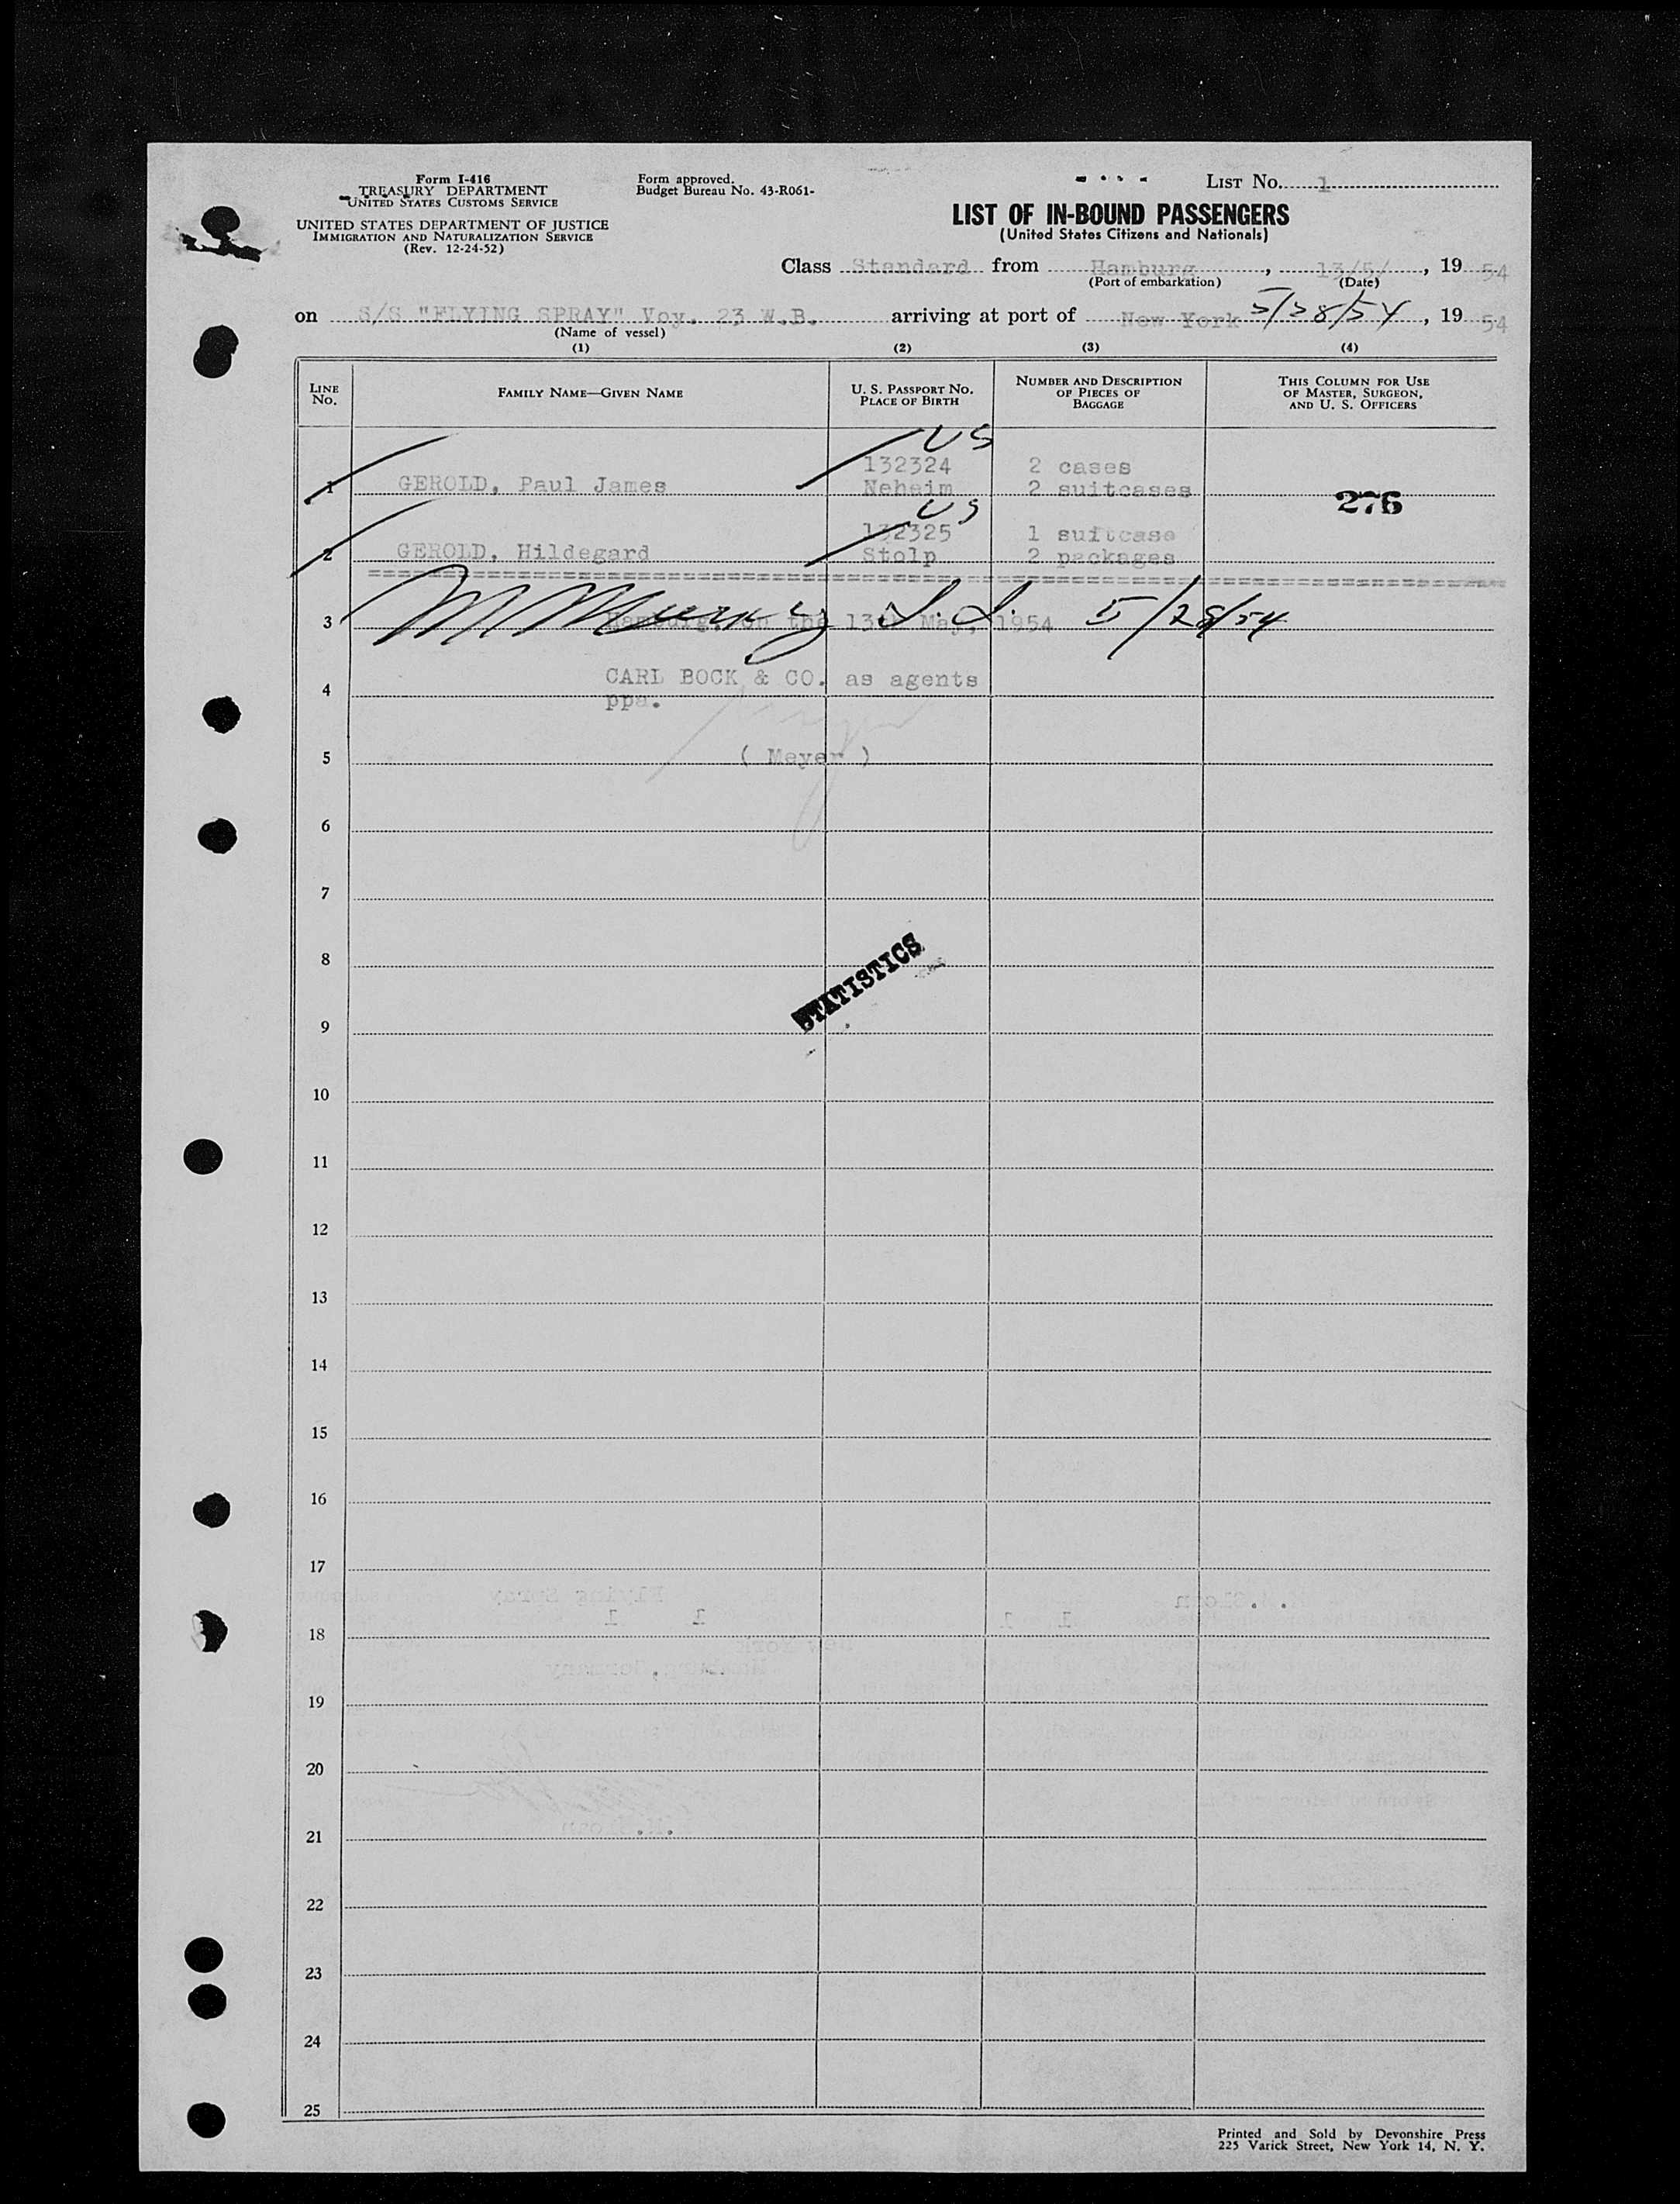 Form I-416
TREASURY DEPARTMENT
UNITED STATES CUSTOMS SERVICE
UNITED STATES DEPARTMENT OF JUSTICE
IMMIGRATION AND NATURALIZATION SERVICE
(Rev. 12-24-52)
Form approved.
Budget Bureau No. 43-R061-
LIST No. 1
LIST OF IN-BOUND PASSENGERS
(United States Citizens and Nationals)
Class Standard from Hamburg, 13/5/, 19 54
(Port of embarkation) (Date)
on S/S "FLYING SPRAY" Voy. 23 W.B. arriving at port of New York 5/28/54, 19 54
(Name of vessel)
(1) (2) (3) (4)
LINE No. FAMILY NAME—GIVEN NAME U. S. PASSPORT No. PLACE OF BIRTH NUMBER AND DESCRIPTION OF PIECES OF BAGGAGE THIS COLUMN FOR USE OF MASTER, SURGEON, AND U. S. OFFICERS
US
132324 2 cases
1 GEROLD, Paul James Neheim 2 suitcases 276
US
132325 1 suitcase
2 GEROLD, Hildegard Stolp 2 packages
3 Hamburg, on the 13th May, 1954 5/28/54
CARL BOCK & CO. as agents
4
ppa.
5 ( Meyer )
6
7
8
STATISTICS
9
10
11
12
13
14
15
16
17
18
19
20
21
22
23
24
25
Printed and Sold by Devonshire Press
225 Varick Street, New York 14, N. Y.